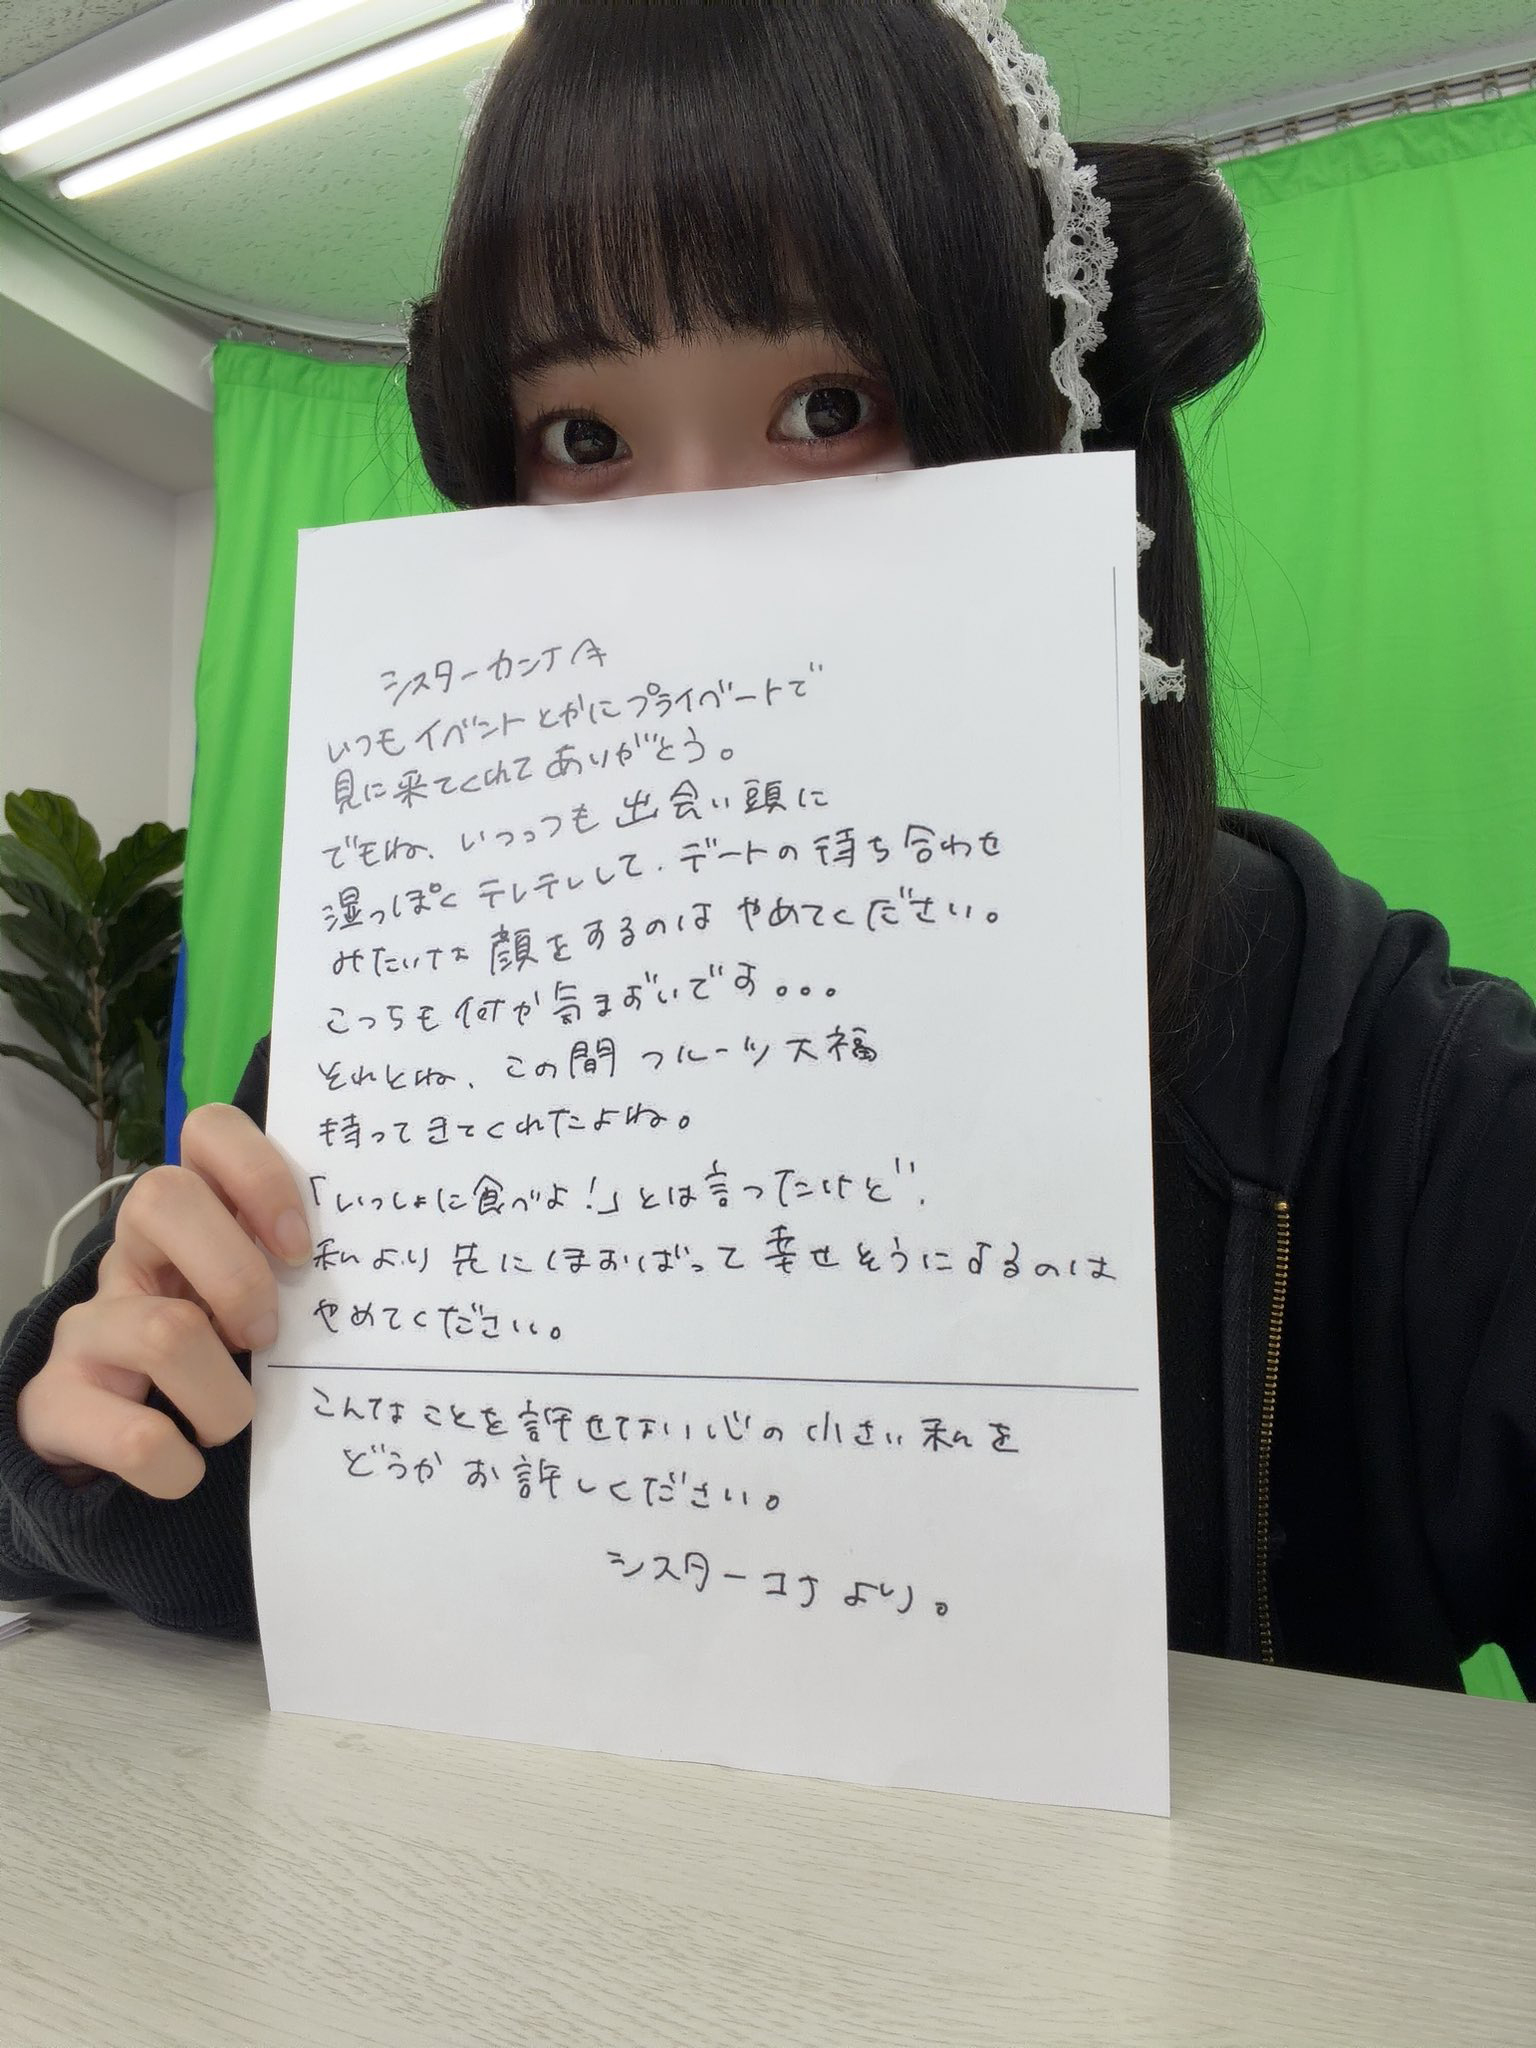 シスターカンナへ
いつもイベントとかにプライベートで
見に来てくれてありがとう。
でもね、いつっつも出会い頭に
湿っぽくテレテレして、デートの待ち合わせ
みたいな顔をするのはやめてください。
こっちも何か気まずいです。。。
それとね、この間フルーツ大福
持ってきてくれたよね。
「いっしょに食べよ!」とは言ったけど、
私より先にほおばって幸せそうにするのは
やめてください。
こんなことを許せない心の小さい私を
どうかお許しください。
シスターコナより。